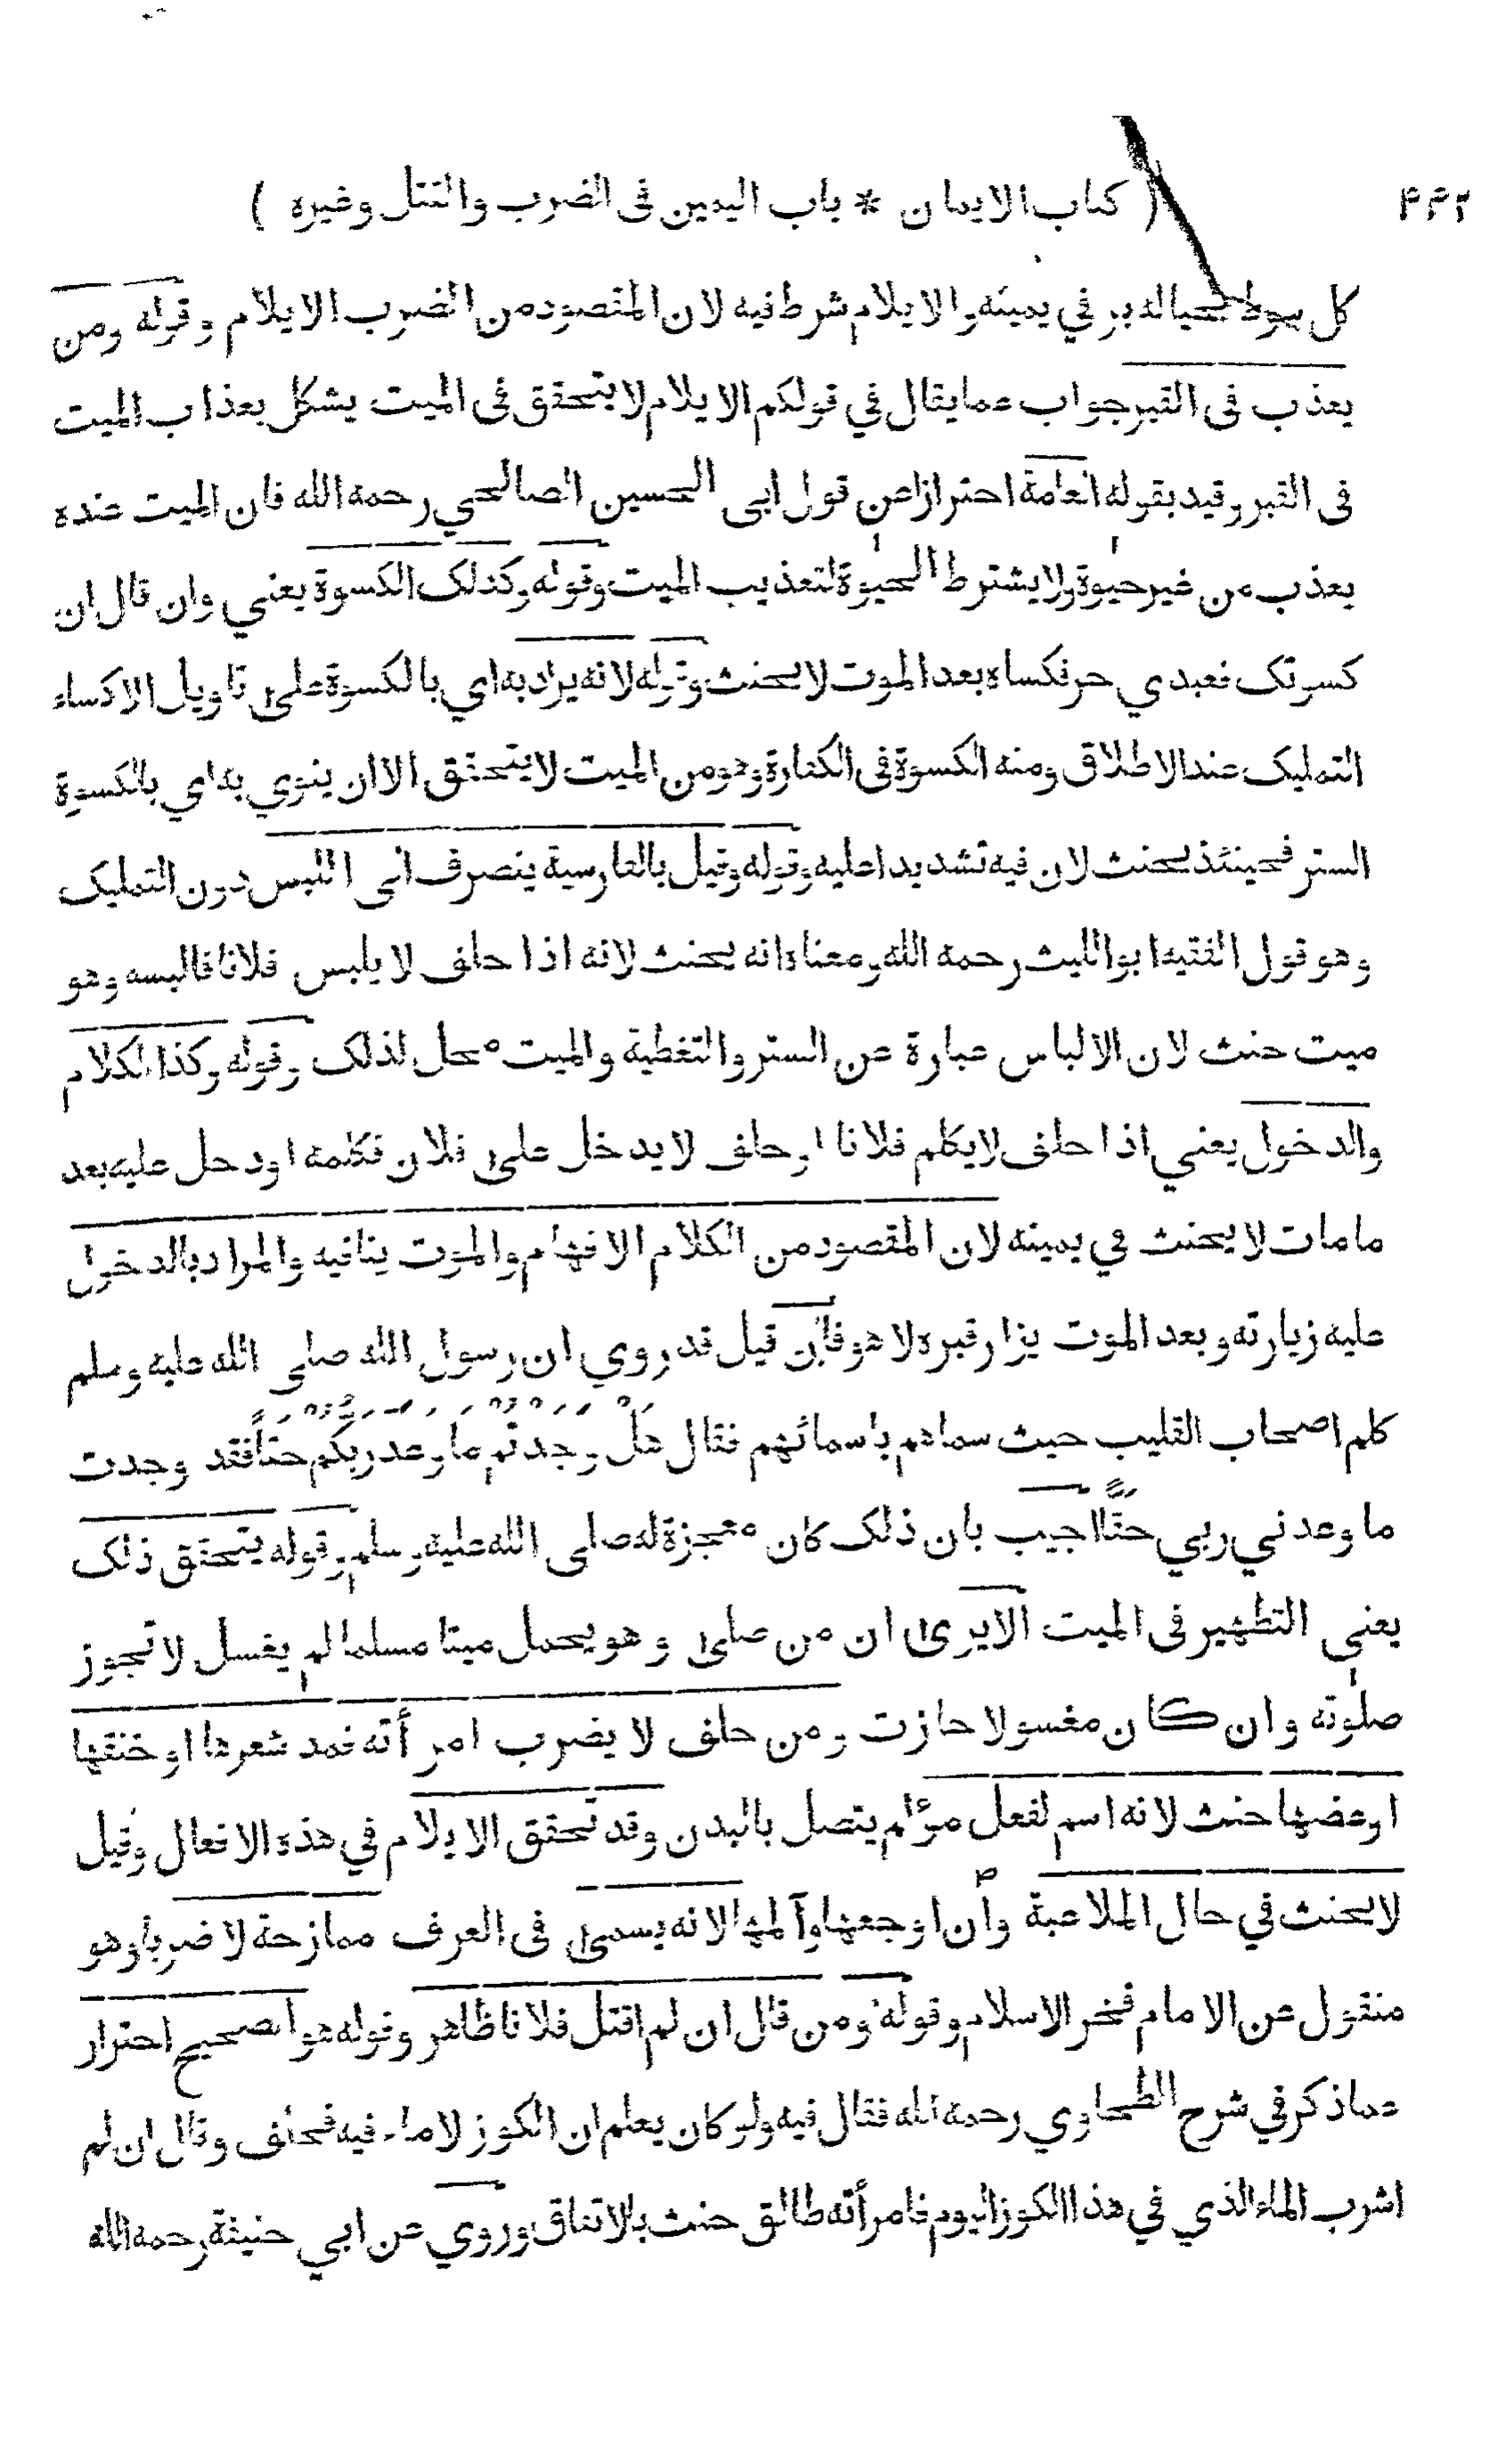 ( كتاب الايمان * باب اليمين فى الضرب والقتل وغيره ) ۴۶۲
كل سوط بحياله بر في يمينه والايلام شرط فيه لان المقصود من الضرب الايلام وقوله ومن
يعذب فى القبر جواب عما يقال في قولكم الايلام لا يتحقق فى الميت يشكل بعذاب الميت
فى القبر وقيد بقوله العامة احترازا عن قول ابى الحسين الصالحي رحمه الله فان الميت عنده
يعذب من غير حيوة ولا يشترط الحيوة لتعذيب الميت وقوله وكذلك الكسوة يعني وان قال ان
كسوتك فعبدي حر فكساه بعد الموت لا يحنث وقوله لانه يراد به اي بالكسوة على تاويل الاكساء
التمليك عند الاطلاق ومنه الكسوة فى الكفارة وهو من الميت لا يتحقق الا ان ينوي به اي بالكسوة
الستر فحينئذ يحنث لان فيه تشديدا عليه وقوله وقيل بالفارسية ينصرف الى اللبس دون التمليك
وهو قول الفقيه ابو الليث رحمه الله ومعناه انه يحنث لانه اذا حلف لا يلبس فلانا فالبسه وهو
ميت حنث لان الالباس عبارة عن الستر والتغطية والميت محل لذلك وقوله وكذا الكلام
والدخول يعني اذا حلف لا يكلم فلانا او حلف لا يدخل على فلان فكلمه او دخل عليه بعد
ما مات لا يحنث في يمينه لان المقصود من الكلام الافهام والموت ينافيه والمراد بالدخول
عليه زيارته وبعد الموت يزار قبره لا هو فان قيل قد روي ان رسول الله صلى الله عليه وسلم
كلم اصحاب القليب حيث سماهم باسمائهم فقال هَلْ وجدتم ما وعد ربكم حقاً فقد وجدت
ما وعدني ربي حقًّا اجيب بان ذلك كان معجزة له صلى الله عليه وسلم وقوله يتحقق ذلك
يعني التطهير فى الميت الايرى ان من صلى وهو يحمل ميتا مسلما لم يغسل لا تجوز
صلوته وان كان مغسولا جازت ومن حلف لا يضرب امرأته فمد شعرها او خنقها
او عضها حنث لانه اسم لفعل مؤلم يتصل بالبدن وقد تحقق الايلام في هذه الافعال وقيل
لا يحنث في حال الملاعبة وان اوجعها وآلمها لانه يسمى فى العرف ممازحة لا ضربا وهو
منقول عن الامام فخر الاسلام وقوله ومن قال ان لم اقتل فلانا ظاهر وقوله هو الصحيح احتراز
عما ذكر في شرح الطحاوي رحمه الله فقال فيه ولو كان يعلم ان الكوز لا ماء فيه فحلف وقال ان لم
اشرب الماء الذي في هذا الكوز اليوم فامرأته طالق حنث بالاتفاق وروي عن ابي حنيفة رحمه الله